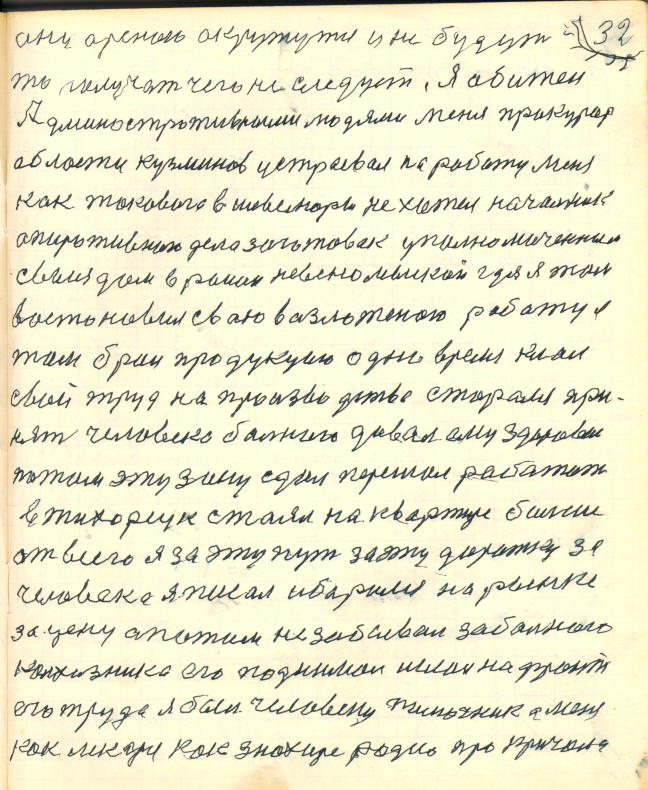 они ореною окружутя и не будут 32
то получат чего не следует, я обижен
Администротивными людями меня прокурор
области кузминов устраевал на работу меня
как токовога в не хотел началник
дела заготовак уполномоченным
своим дом в раион невеномыской где я там
востоновил сваю вазложеною работу я
там брал продукцыю одно время клал
свой труд на произво детве стараля при-
нят человека балного давал ему здоровие
потом эту зону сдал перешол работат
в тихорецк стаял на квартире болше
от всего я за эту пут за эту дорожку за
человека я писал и баролся на рынке
за цену а потом не забывал забалного
колхазника его поднимал шлал на фронт
его труда я был человеку а меня
как лекаря как знахаря родио про кричала